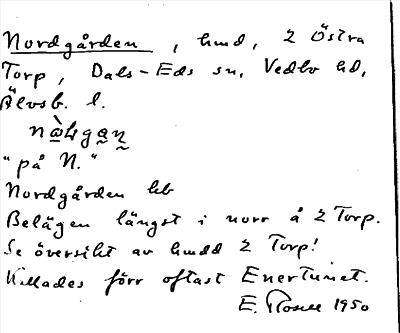 Nordgården, hmd, 2 Östra
Torp, Dals-Eds sn, Vedbo hd,
Älvsb. l.
"på N."
Nordgården kb
Belägen längst i norr å 2 Torp.
Se översikt av hmdd 2 Torp!
Kallades förr oftast Enertunet.
E. 1950